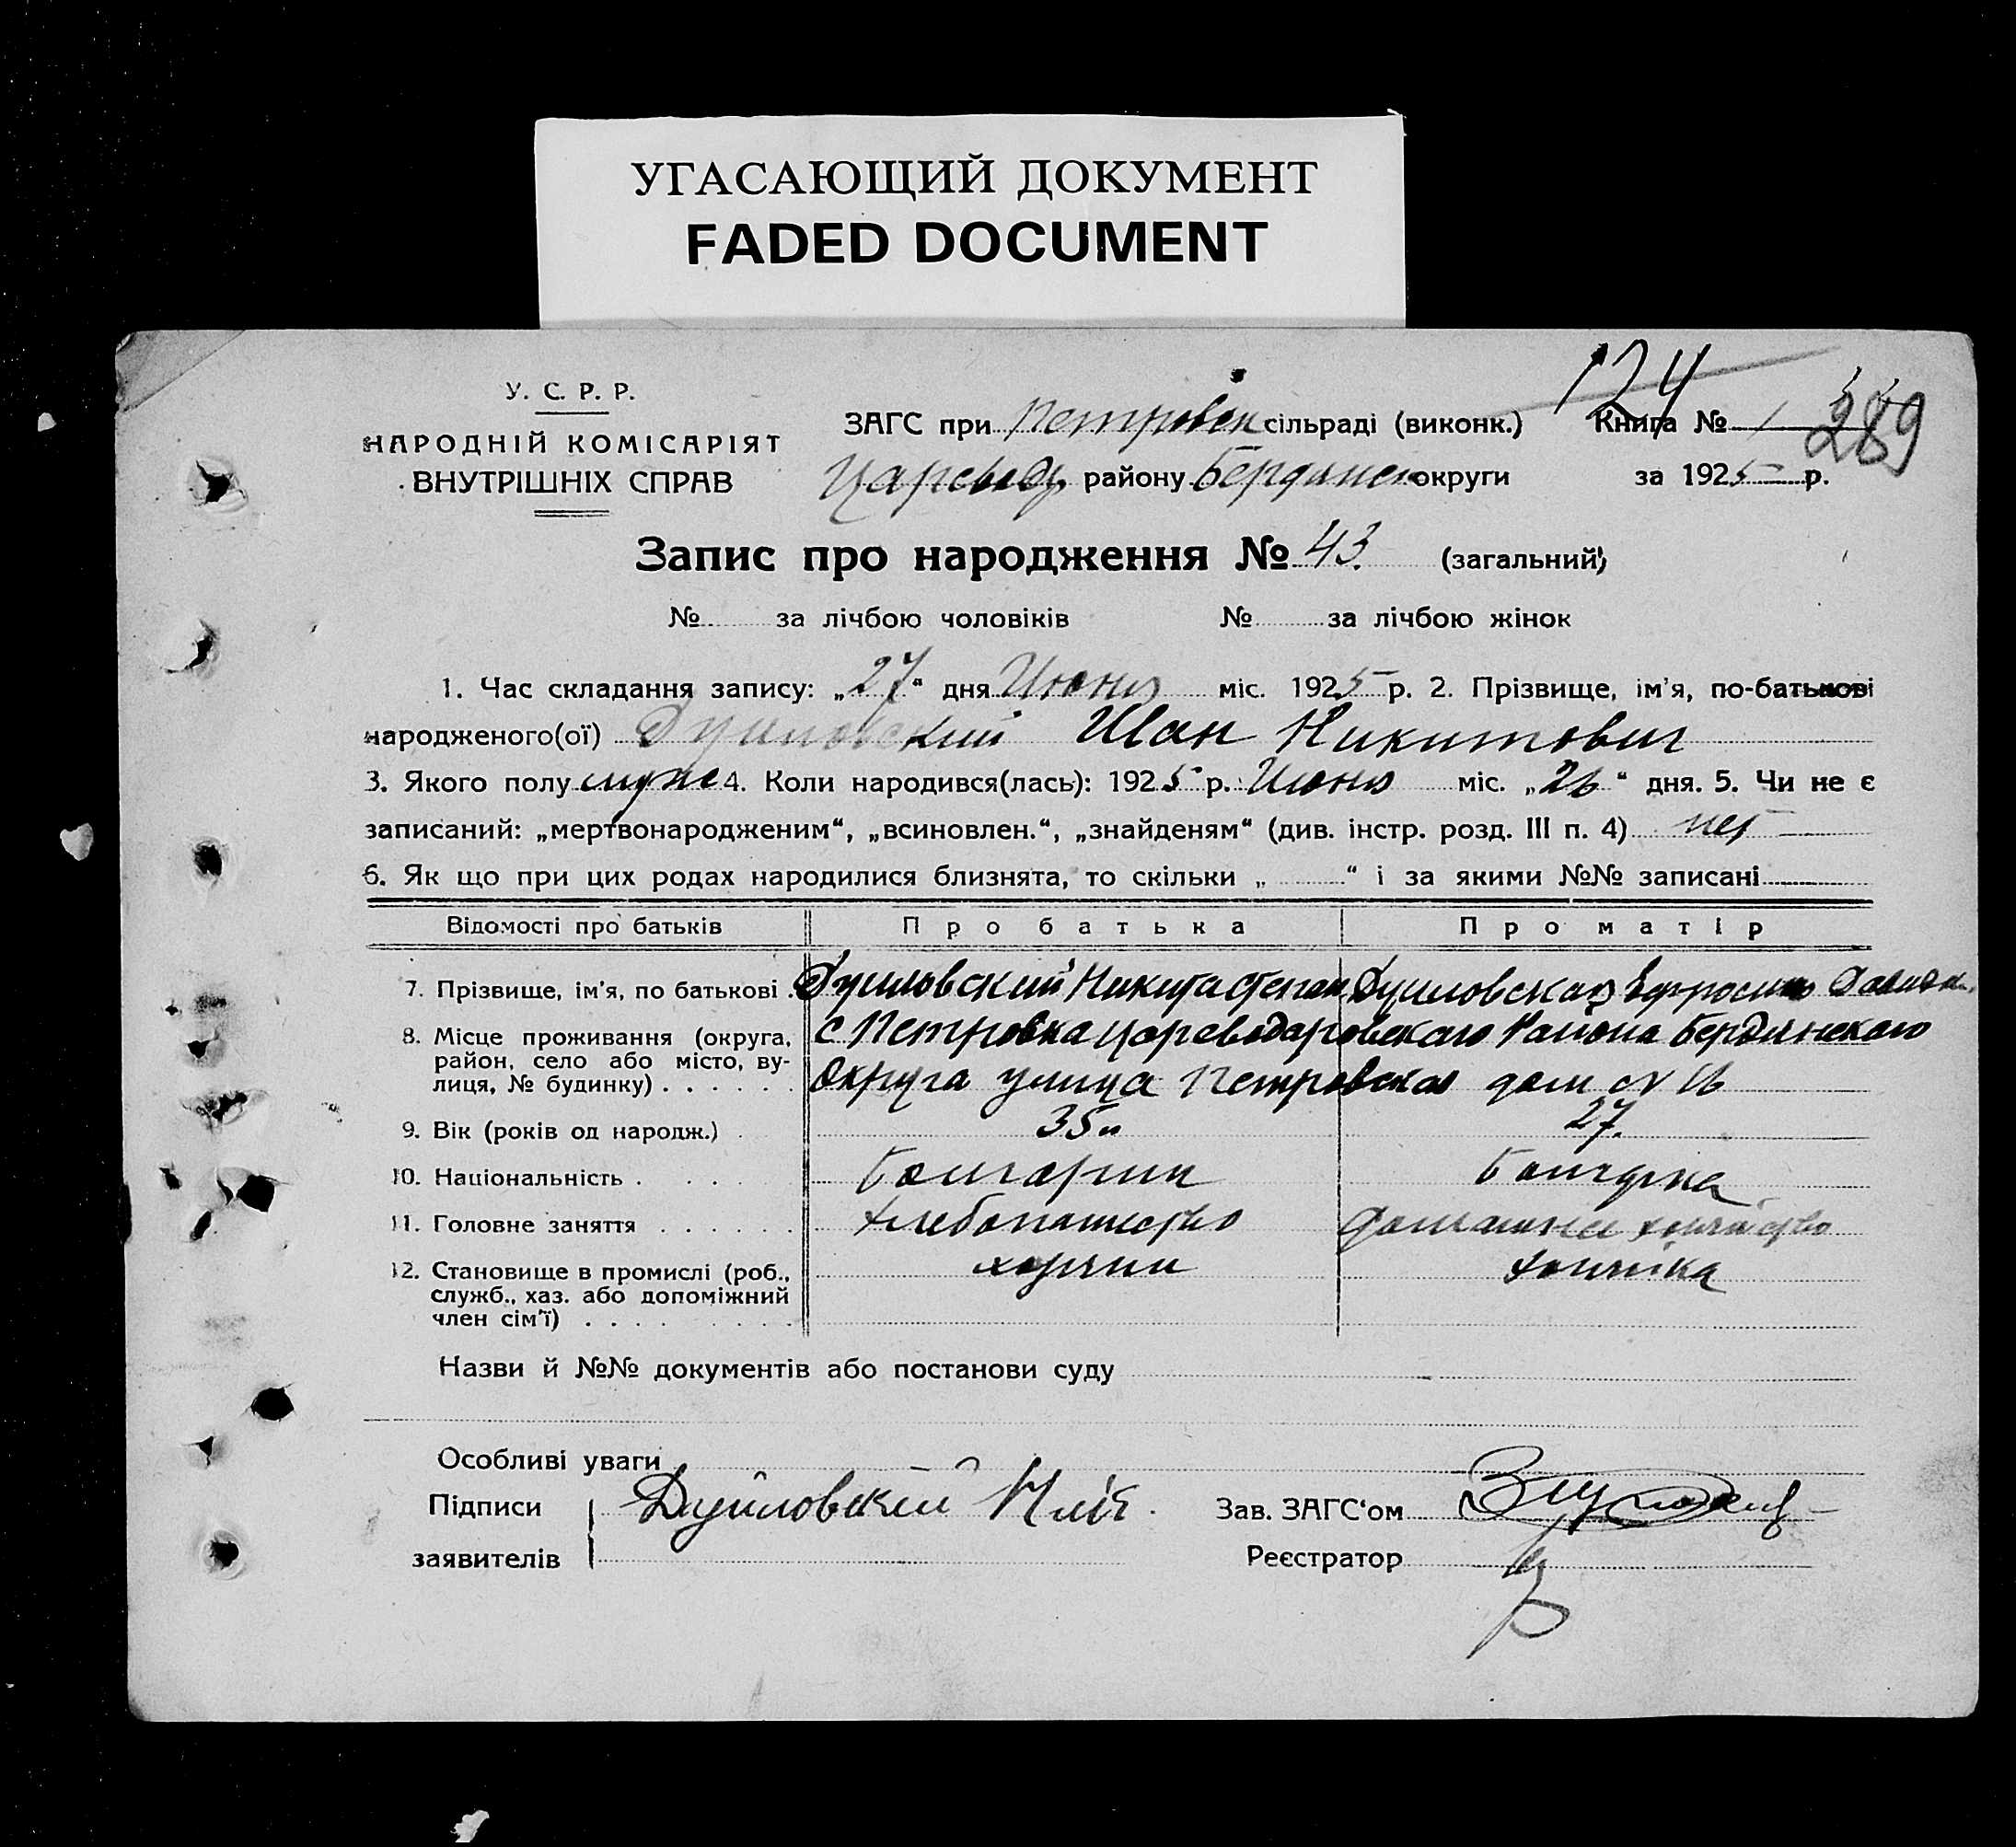 УГАСАЮЩИЙ ДОКУМЕНТ
FADED DOCUMENT
124
289
У. С. Р. Р.
НАРОДНІЙ КОМІСАРІЯТ
ВНУТРІШНІХ СПРАВ
ЗАГС при Петровск сільраді (виконк.) Книга № 1
Царевод району Бердянск округи за 1925 р.
Запис про народження № 43. (загальний)
№ за лічбою чоловіків № за лічбою жінок
1. Час складання запису: „27“ дня Июня міс. 1925 р. 2. Прізвище, ім'я, по-батькові
народженого(ої) Дуиловский Иван Никитович
3. Якого полу муж 4. Коли народився(лась): 1925 р. Июня міс. „26“ дня. 5. Чи не є
записаний: „мертвонародженим“, „всиновлен.“, „знайденям“ (див. інстр. розд. III п. 4) нет
6. Як що при цих родах народилися близнята, то скільки „ “ і за якими №№ записані
Відомості про батьків Про батька Про матір
7. Прізвище, ім'я, по батькові . Дуиловский Никита Степан Дуиловская Ефросиния
8. Місце проживання (округа, район, село або місто, вулиця, № будинку) . . . . . . с Петровка Цареводаровскаго Района Бердянскаго
Округа улица Петровская дом № 16
9. Вік (років од народж.) . 35 27.
10. Національність . . . . Болгарин Болгарка
11. Головне заняття . . . . . . Хлебопашество домашнее хозяйство
12. Становище в промислі (роб., служб., хаз. або допоміжний член сім'ї) . . . . . . . . хозяин хозяйка
Назви й №№ документів або постанови суду
Особливі уваги
Підписи Дуйловскій Зав. ЗАГС'ом
заявителів Реєстратор